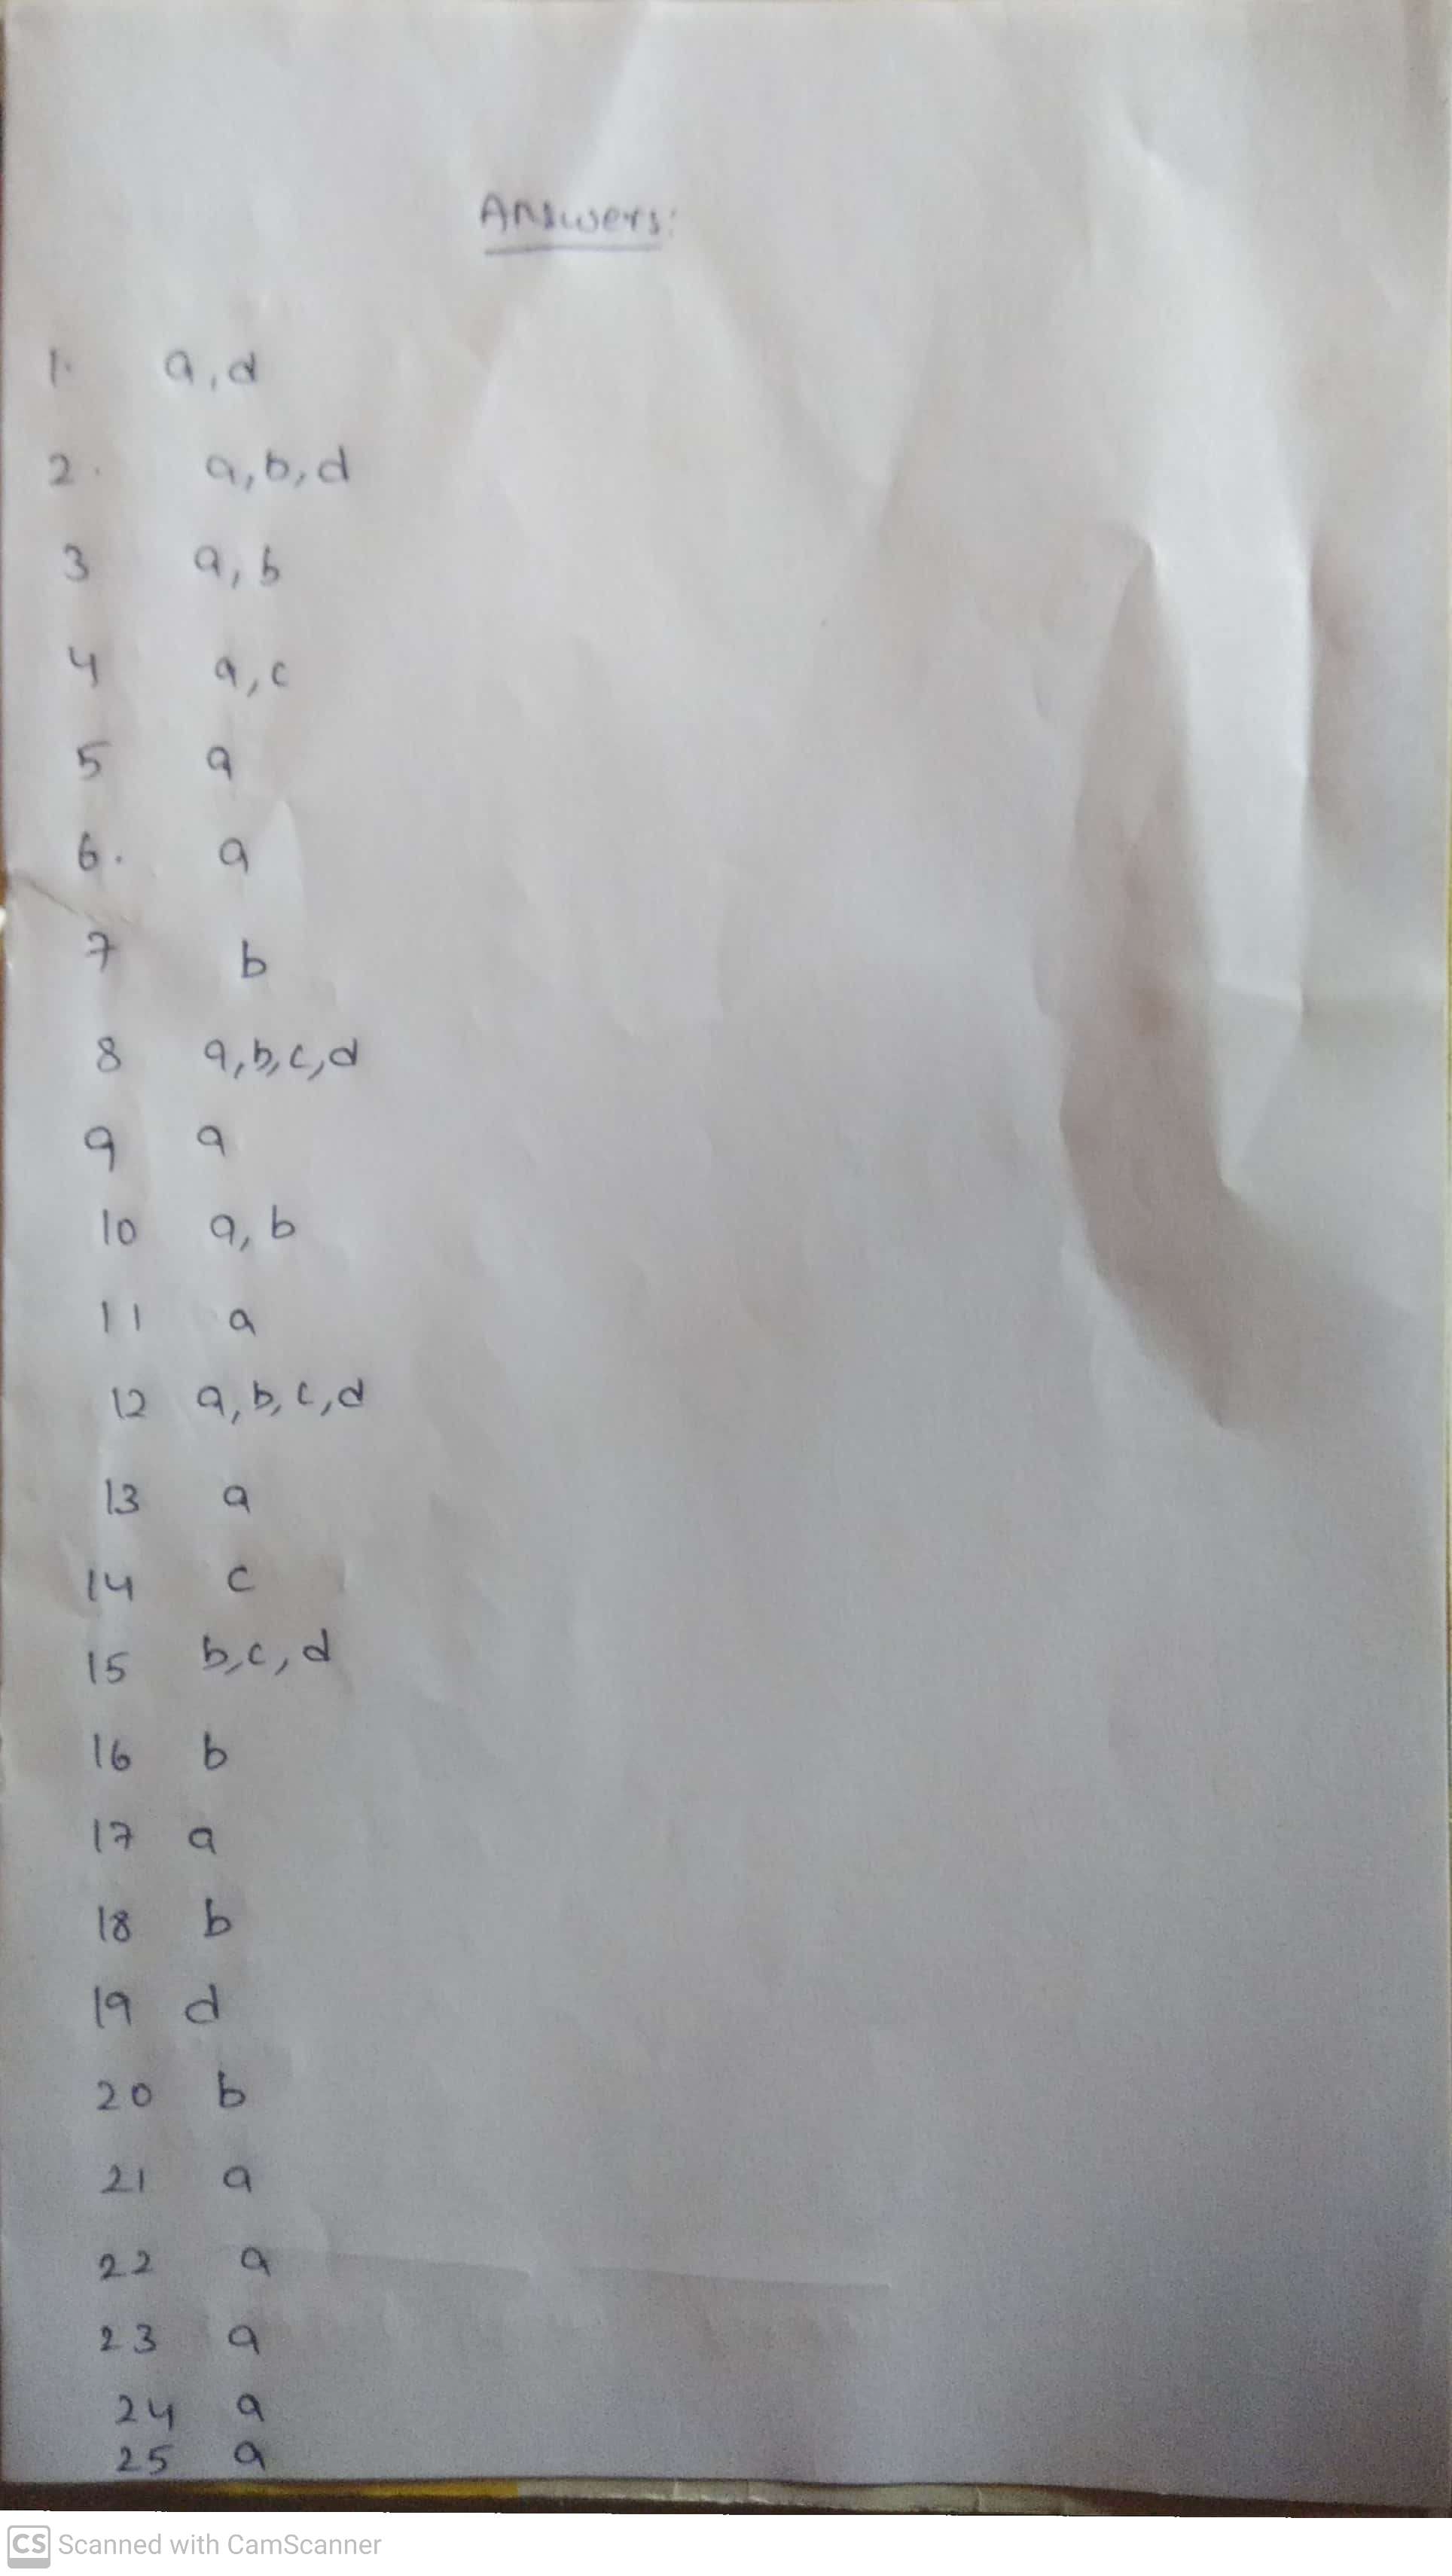 Answers:
1. a, d
2. a, b, d
3 a, b
4 a, c
5 a
6. a
7 b
8 a, b, c, d
9 a
10 a, b
11 a
12 a, b, c, d
13 a
14 c
15 b, c, d
16 b
17 a
18 b
19 d
20 b
21 a
22 a
23 a
24 a
25 a
CS Scanned with CamScanner